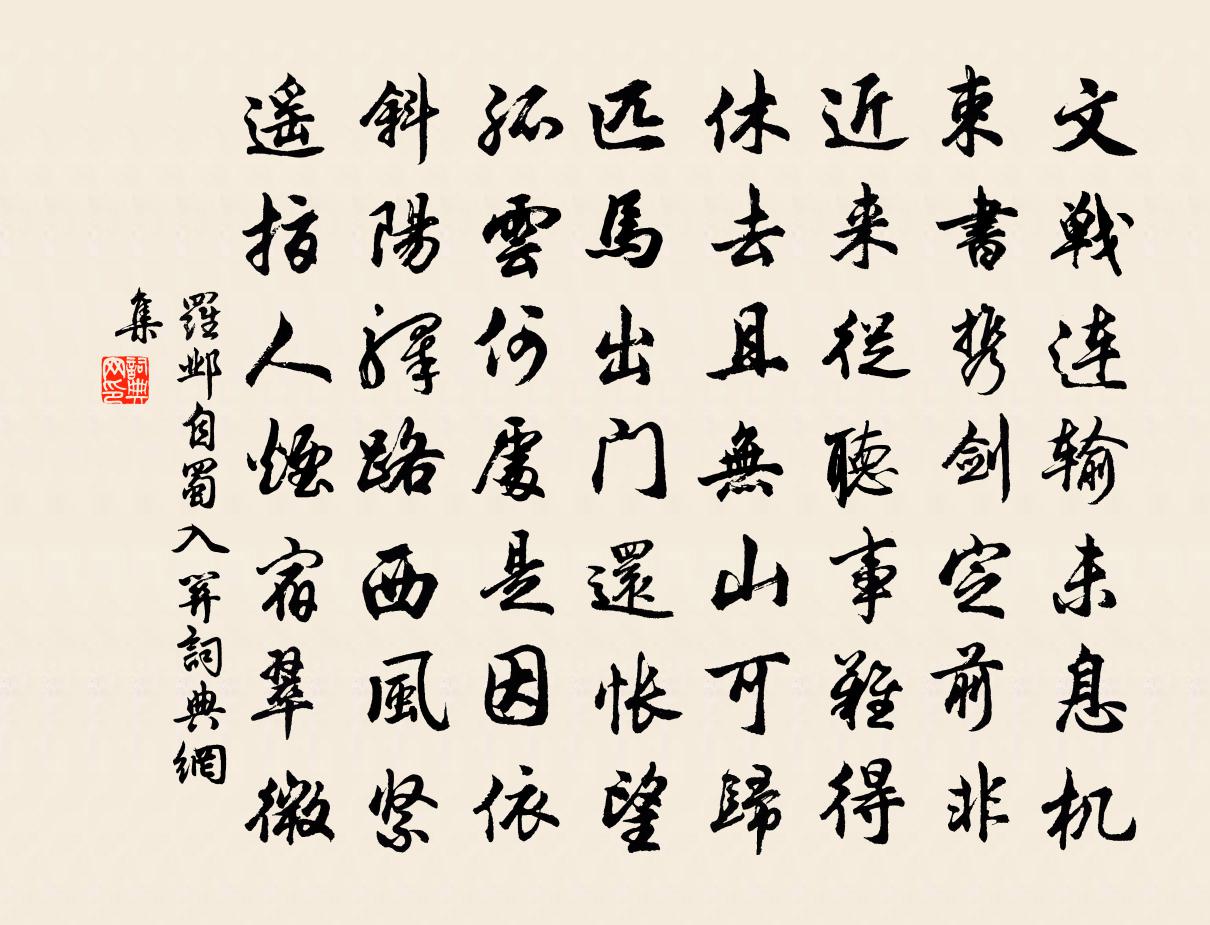 文戦连输未息机
束書携剑定前非
近来從聴事難得
休去且無山可歸
匹馬出门還怅望
孤雲何處是因依
斜陽驛路西風紧
遥指人煙宿翠微
羅邺自蜀入関詞典網
集
詞典
网印